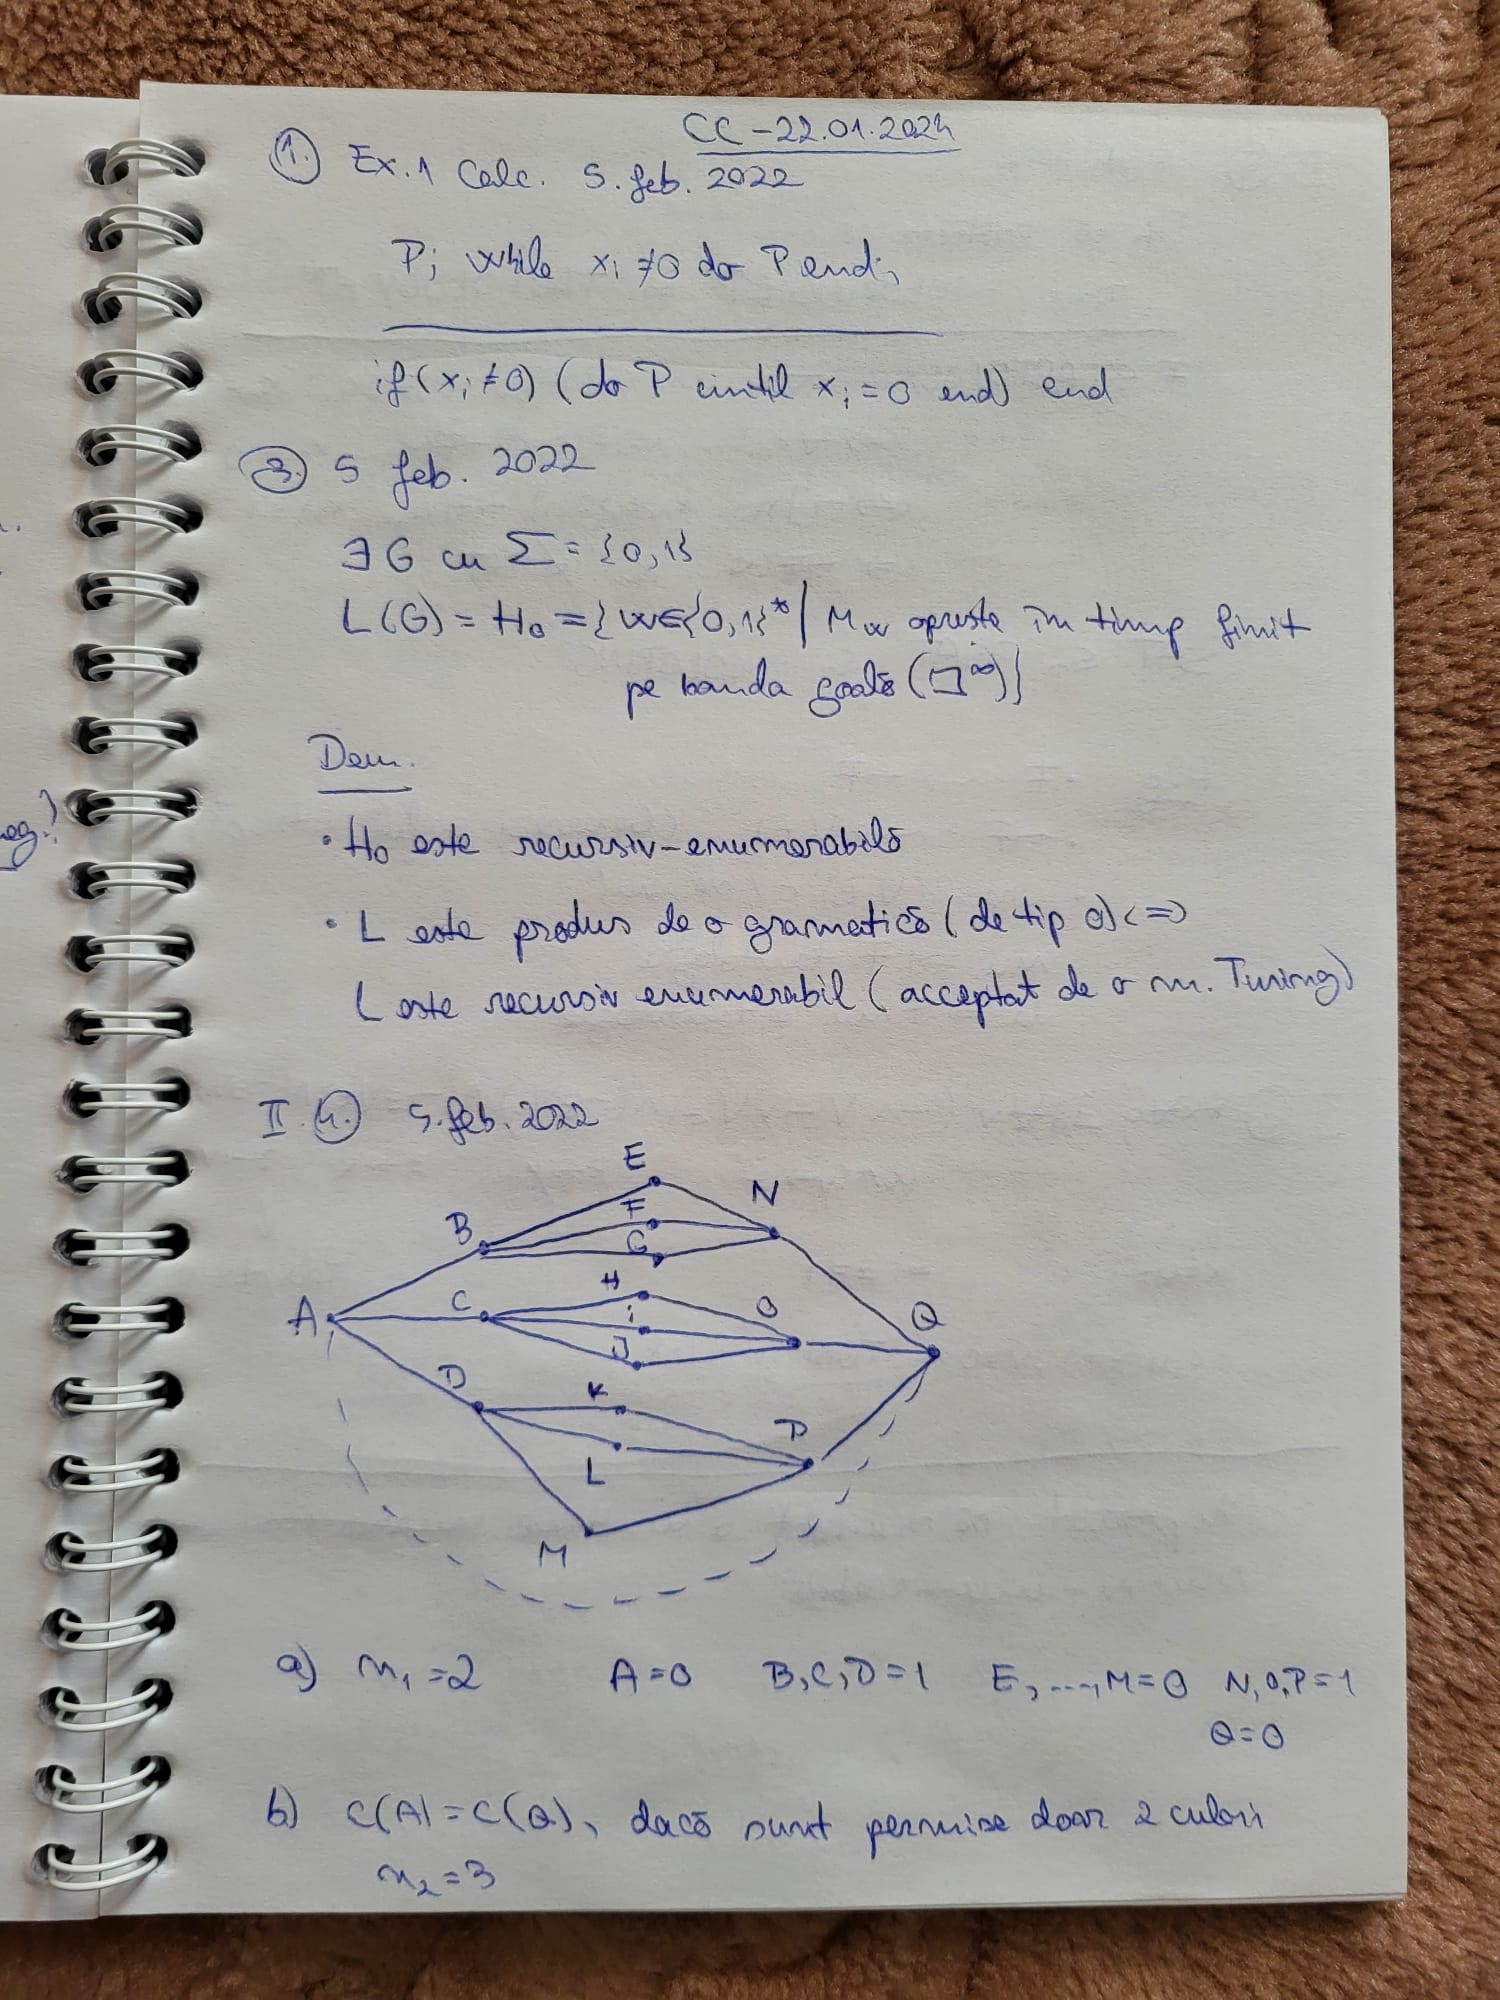 CC - 22.01.2024
1. Ex. 1 Calc. 5. feb. 2022
P; while xi ≠0 do P end;
if (xi ≠0) (do P until xi = 0 end) end
3. 5 feb. 2022
∃ G cu Σ = {0,1}
L(G) = H0 = {w∈{0,1}* | Mw oprește în timp finit
pe banda goală (□∞)}
Dem.
• H0 este recursiv-enumerabilă
• L este produs de o gramatică (de tip 0) <=>
L este recursiv enumerabil (acceptat de o m. Turing)
II. 4. 5. feb. 2022
E
F
N
B
G
H
A
C
i
O
Q
J
D
K
P
L
M
a) n1 = 2 A=0 B,C,D=1 E,...,M=0 N,O,P=1
Q=0
b) C(A) = C(Q), dacă sunt permise doar 2 culori
n2 = 3
eg?